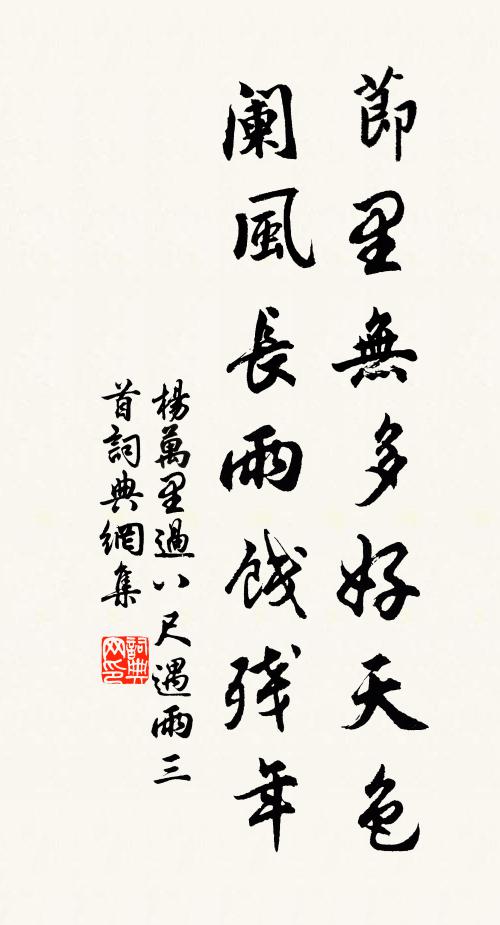 節里無多好天色
闌風長雨餞残年
楊萬里過八尺遇雨三
首詞典網集
詞典
网印